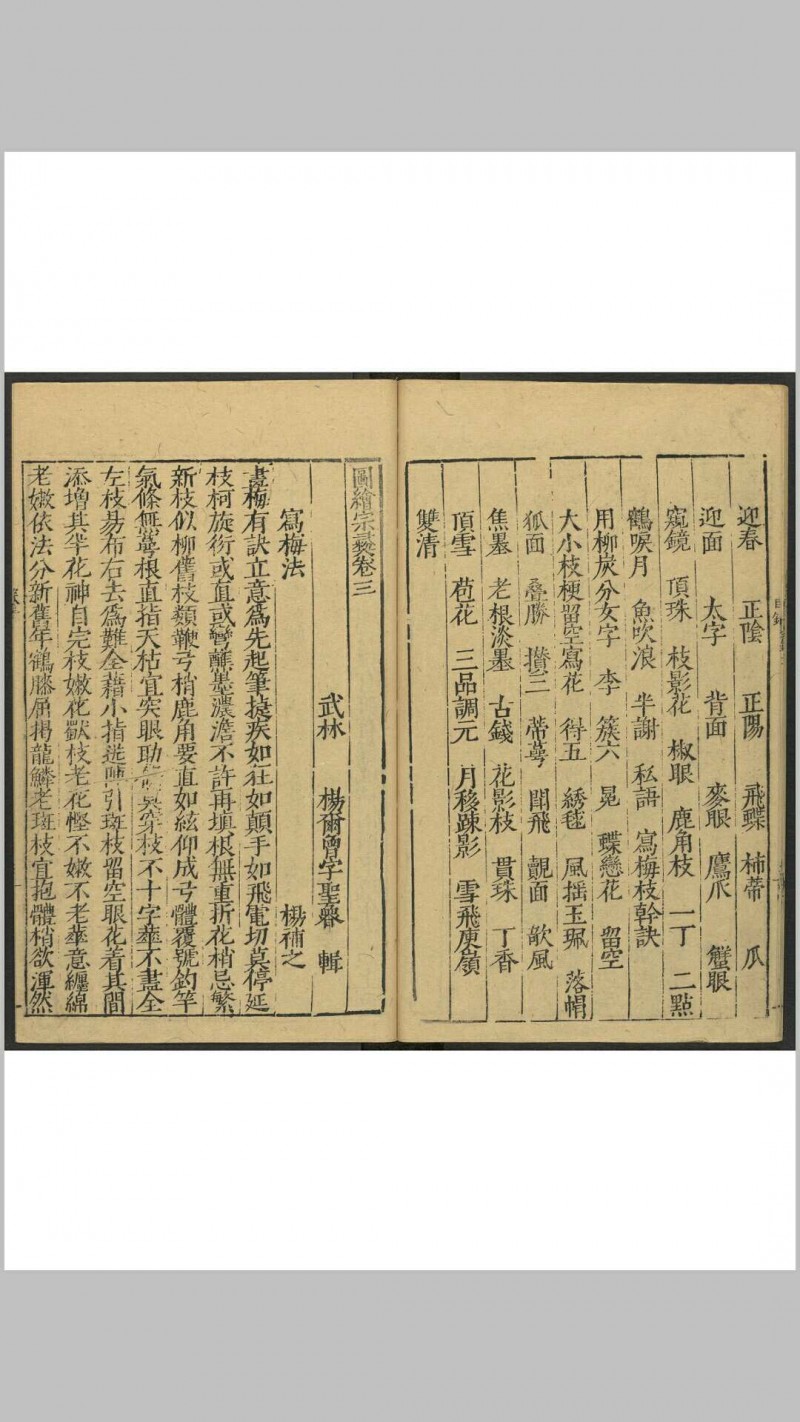 迎春　正陰　正陽　飛蝶　柿蒂　瓜
迎面　太字　背面　麥眼　鷹爪　蟹眼
窺鏡　頂珠　枝影花　椒眼　鹿角枝　一丁　二點
鶴唳月　魚吹浪　半謝　私語　寫梅枝幹訣
用柳炭分女字　李　簇六　晃　蝶戀花　留空
大小枝梗留空寫花　得五　綉毬　風揺玉珮　落帽
狐面　叠勝　攢三　蒂萼　開飛　覷面　歆風
焦墨　老根淡墨　古錢　花影枝　貫珠　丁香
頂雪　苞花　三品調元　月移踈影　雪飛庾嶺
雙清
圖繪宗彝卷三
武林　楊爾曾字聖魯　輯
寫梅法　楊補之
畫梅有訣立意爲先起筆捷疾如狂如顛手如飛電切莫停延
枝柯旋衍或直或彎蘸墨濃澹不許再填根無重折花梢忌繁
新枝似柳舊枝類鞭弓梢鹿角要直如絃仰成弓體覆號釣竿
氣條無萼根直指天枯宜突眼助枝不十字花不畫全
左枝易布右去爲難全藉小指送引斑枝留空眼花着其間
添增其半花神自完枝嫩花獸枝老花慳不嫩不老花意纏綿
老嫩依法分新舊年鶴膝屈揭龍鱗老斑枝宜抱體梢欲渾然